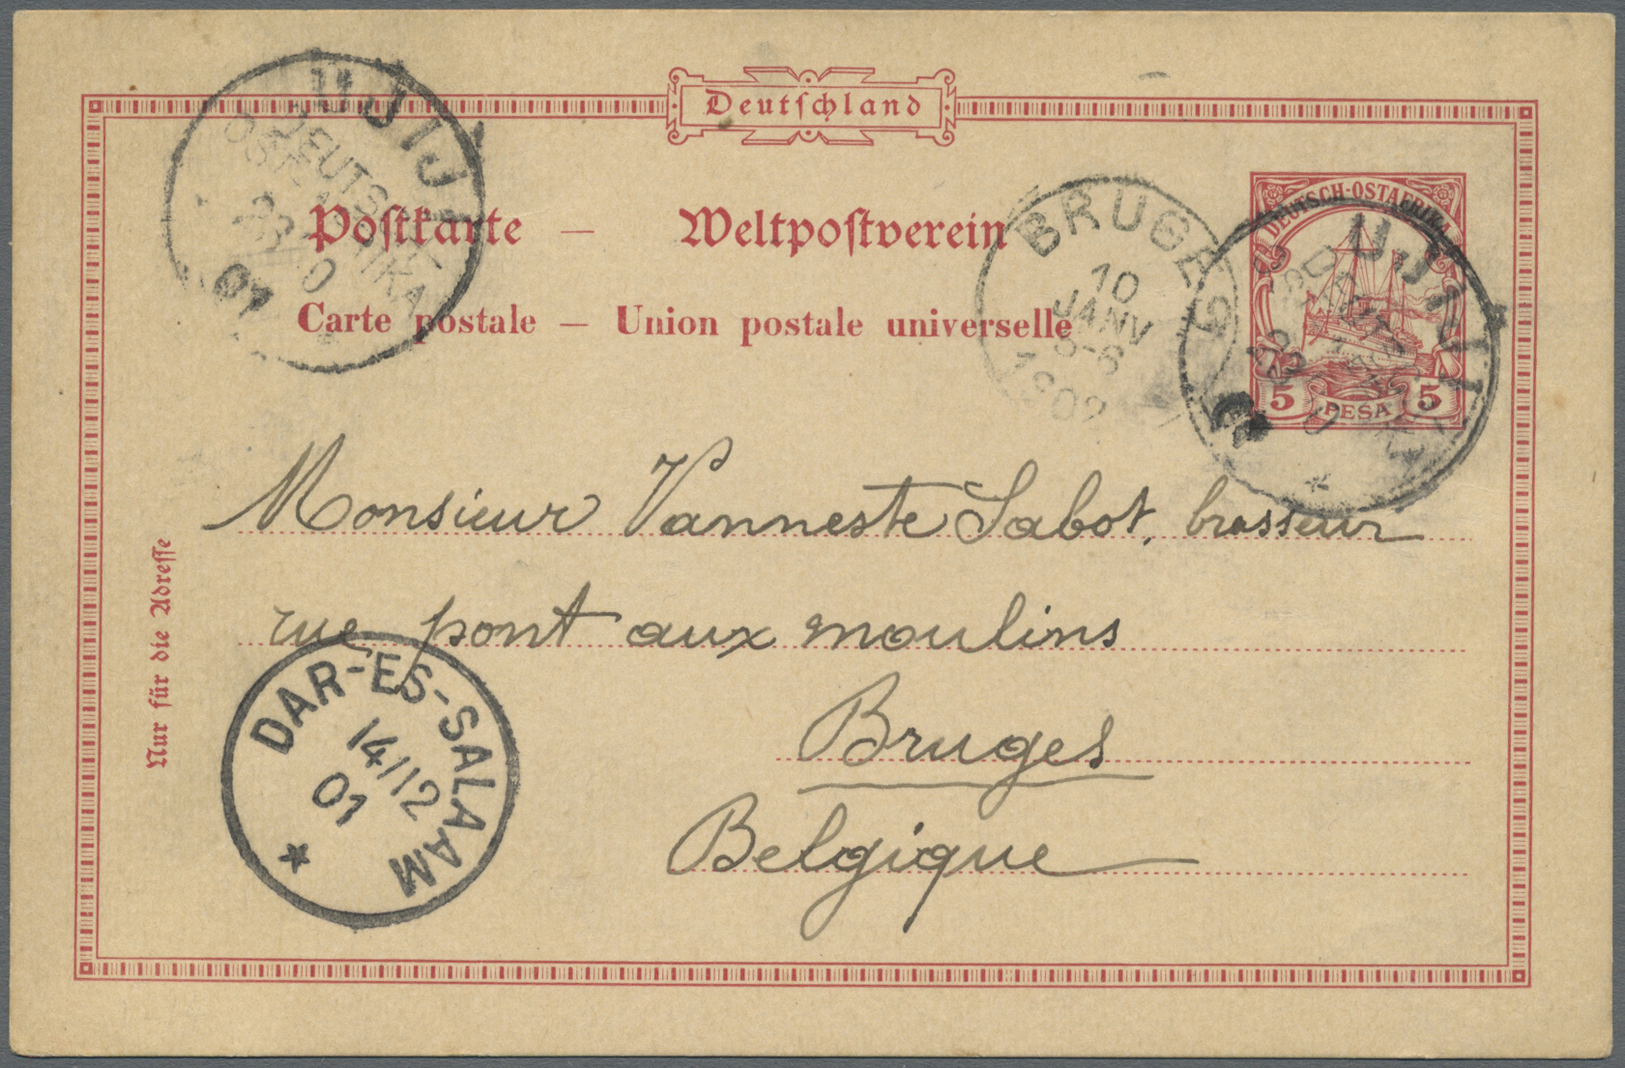 Deutschland
UJIJI
DEUTSCH-
OSTAFRIKA
01
Postkarte – Weltpostverein
Carte postale – Union postale universelle
BRUGES
10
JANV
5-6
1902
DEUTSCH-OSTAFRIKA
5 PESA 5
UJIJI
Monsieur Vanneste Sabot, brasseur
rue pont aux moulins
Bruges
Belgique
Nur für die Adresse
DAR-ES-SALAAM
14/12
01